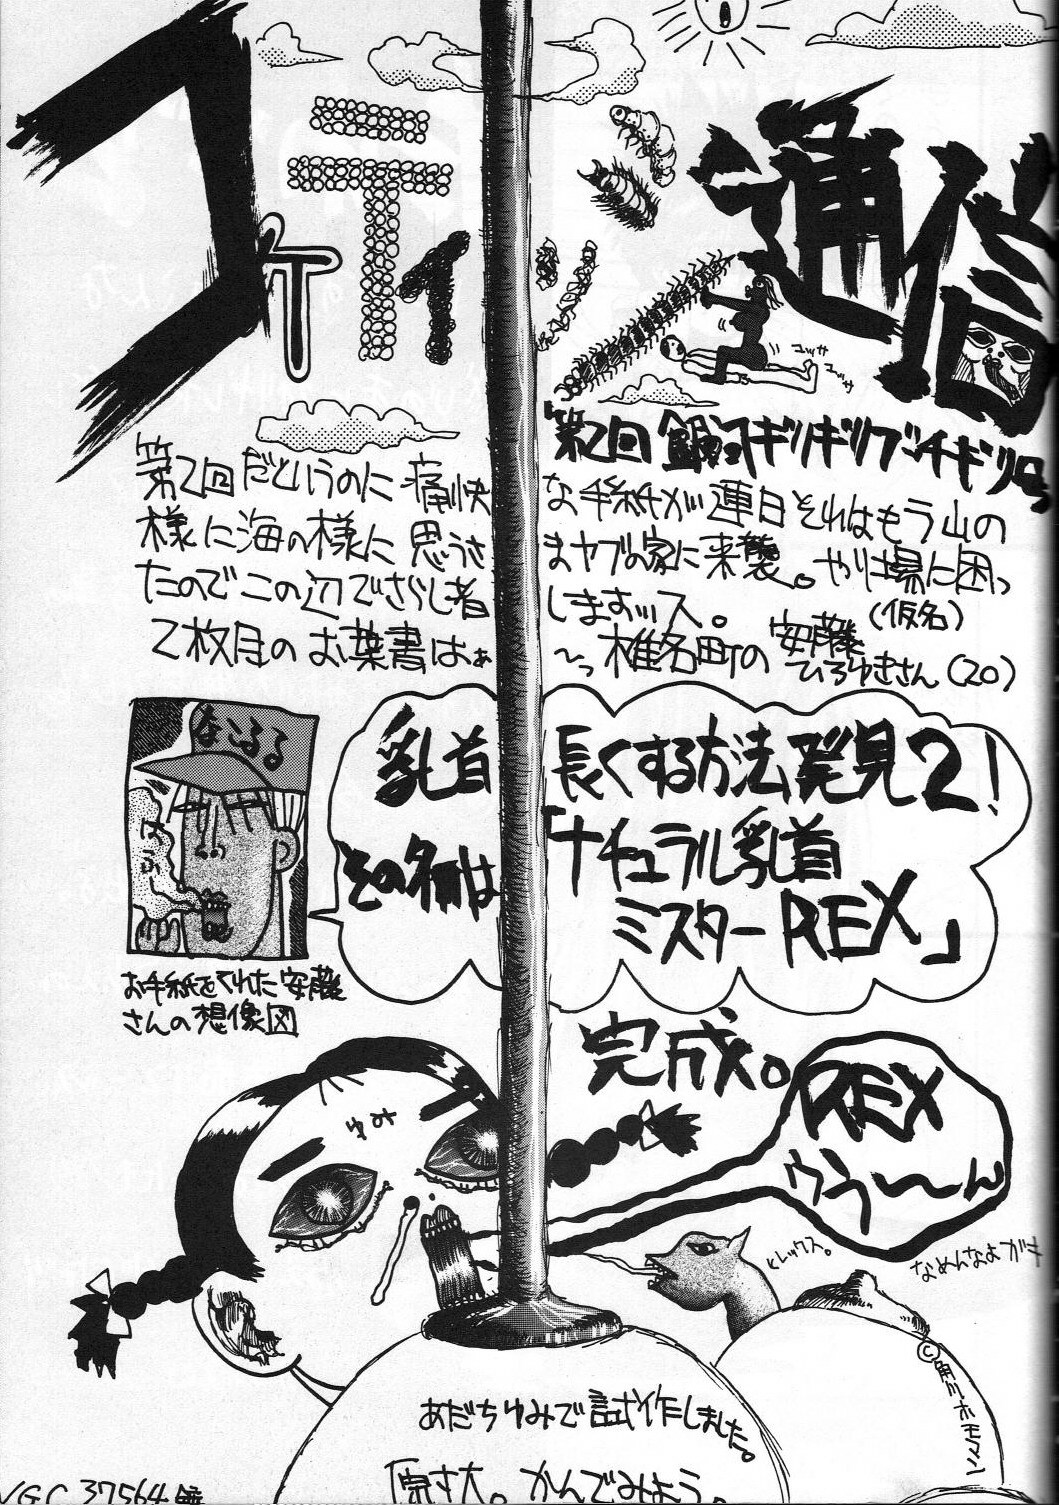 通信
コッサ
コッサ
第2回
ギリギリブッチギリ
第2回だというのに痛快な手紙が連日それはもう山の
様に海の様に思うさまヤブの家に来襲。やり場に困っ
たのでこの辺でさらし者にしますッス。
(仮名)
2枚目のお葉書はぁ〜っ椎名町の安藤
ひろゆきさん(20)
なこるる
乳首長くする方法発見2!
その名は「ナチュラル乳首
ミスターREX」
お手紙をくれた安藤
さんの想像図
完成。
ゆみ
REX
ウぅ〜ん
とレックス。
なめんなよガキ
©角川
あだちゆみで試作しました。
原寸大。かんでみよう。
VGC 37564